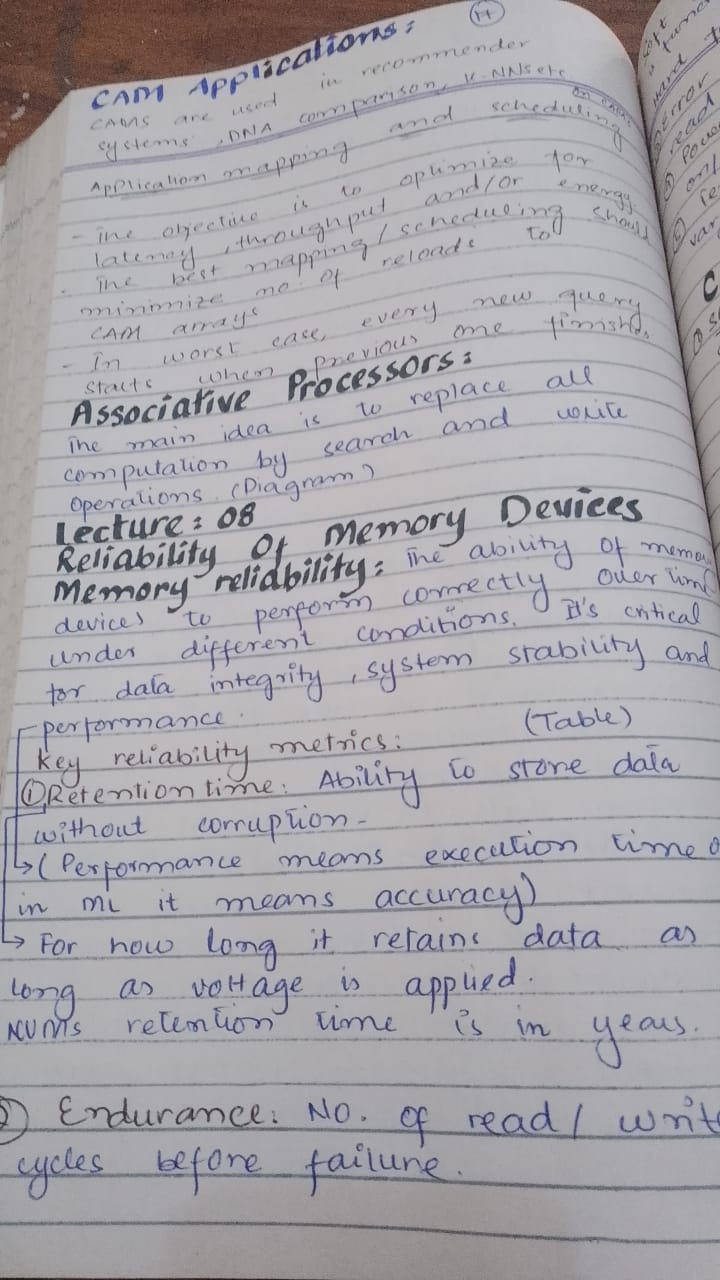 17
CAM Applications:
CAMs are used in recommender
systems, DNA comparison, K-NNs etc
Application mapping and scheduling
- The objective is to optimize for
latency, throughput and/or energy
- The best mapping/scheduling should
minimize no of reloads to
CAM arrays
- In worst case, every new query
starts when previous one finishes.
Associative Processors:
The main idea is to replace all
computation by search and write
operations. (Diagram)
Lecture: 08
Reliability Of Memory Devices
Memory reliability: The ability of memo
devices to perform correctly over time
under different conditions. It's critical
for data integrity, system stability and
performance. (Table)
Key reliability metrics:
① Retention time: Ability to store data
without corruption.
↳ (Performance means execution time
in ML it means accuracy)
↳ For how long it retains data as
long as voltage is applied.
NVMs retention time is in years.
② Endurance: No. of read/ writ
cycles before failure.
error
read
onl
var
C